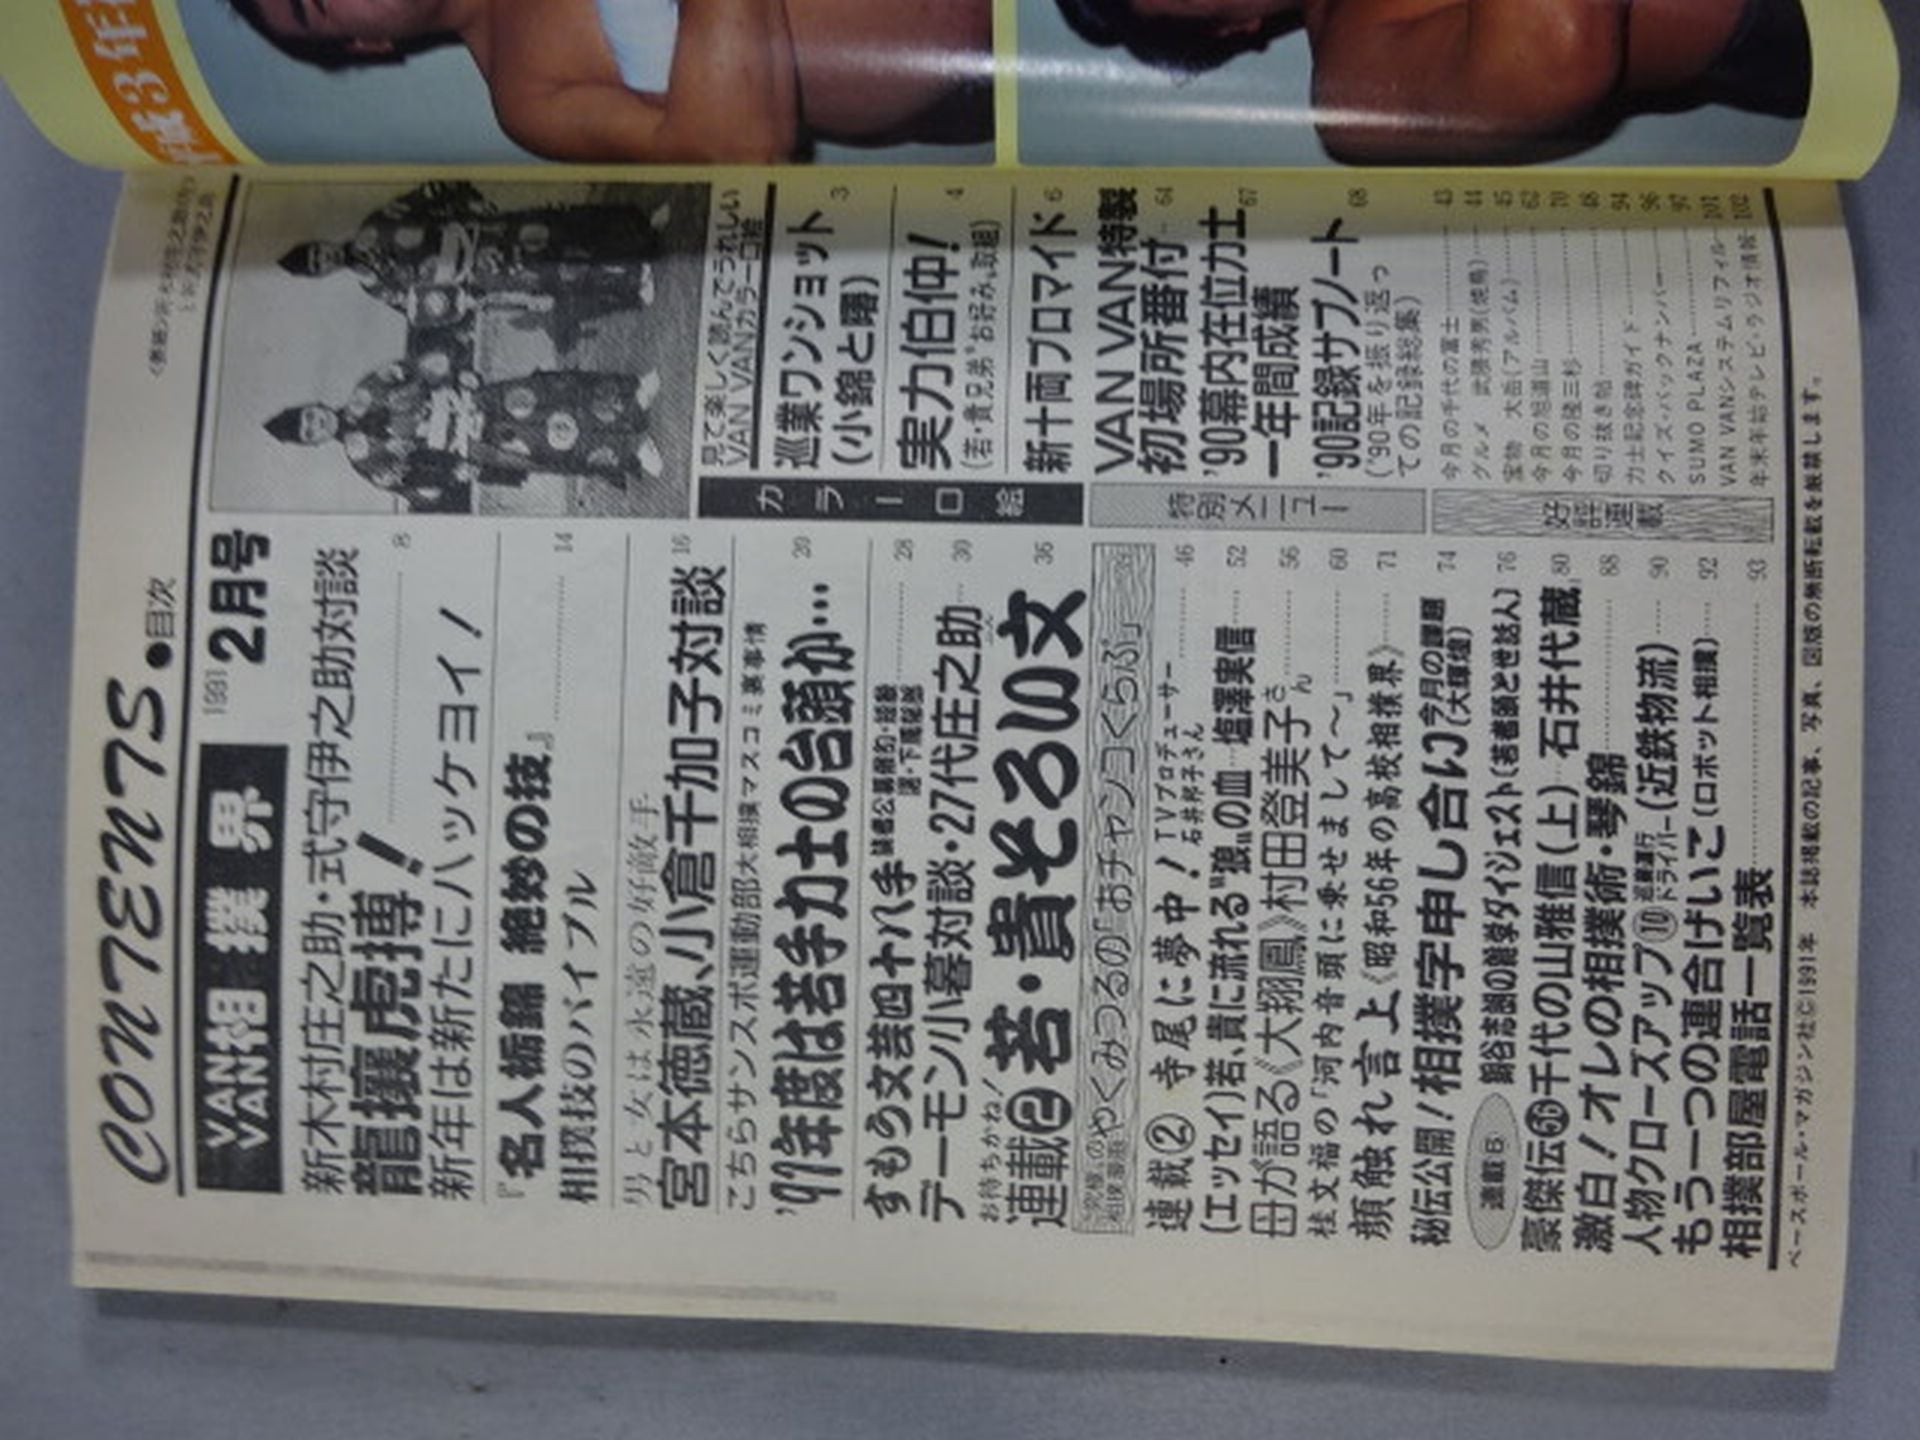 CONTENTS.●目次
VAN VAN 相撲界
1991 2月号
新木村庄之助・式守伊之助対談
龍攘虎搏！ 8
新年は新たにハッケヨイ！
『名人栃錦 絶妙の技』 14
相撲技のバイブル
男と女は永遠の好敵手 16
宮本徳蔵、小倉千加子対談
こちらサンスポ運動部大相撲マスコミ裏事情
'91年度は若手力士の台頭か… 20
すもう文芸四十八手 28
デーモン小暮対談・27代庄之助 30
お待ちかね！
連載② 若・貴そろい文 36
やくみつるの「おチャンコくらぶ」
連載② 寺尾に夢中！ TVプロデューサー 石井邦子さん 46
(エッセイ)若、貴に流れる"狼"の血 塩澤実信 52
母が語る《大翔鳳》村田登美子さん 56
桂文福の「河内音頭に乗せまして〜」 60
顔触れ言上《昭和56年の高校相撲界》 71
秘伝公開！相撲字申し合い 今月の課題(大輝煌) 74
連載⑤
銅谷志朗の能学ダイジェスト(若者頭と世話人) 76
豪傑伝66千代の山雅信(上) 石井代蔵 80
激白！オレの相撲術・琴錦 88
人物クローズアップ⑩ 巡業運行ドライバー(近鉄物流) 90
もう一つの連合げいこ(ロボット相撲) 92
相撲部屋電話一覧表 93
カラー口絵
見て楽しく読んでうれしい
VAN VANカラー口絵
巡業ワンショット 3
(小錦と曙)
実力伯仲！ 4
(若・貴兄弟"お好み"取組)
新十両ブロマイド 6
特別メニュー
VAN VAN特製
初場所番付 64
'90幕内在位力士 67
一年間成績
'90記録サブノート 68
('90年を振り返っ
ての記録総集)
好評連載
今月の千代の富士 43
グルメ 武勝秀男(焼鳥) 44
宝物 大岳(アルバム) 45
今月の旭道山 62
今月の隆三杉 70
切り抜き帖 48
力士記念碑ガイド 94
クイズ・バックナンバー 96
SUMO PLAZA 97
VAN VANシステムリフィル 101
年末年始テレビ・ラジオ情報 102
ベースボール・マガジン社©1991年 本誌掲載の記事、写真、図版の無断転載を厳禁します。